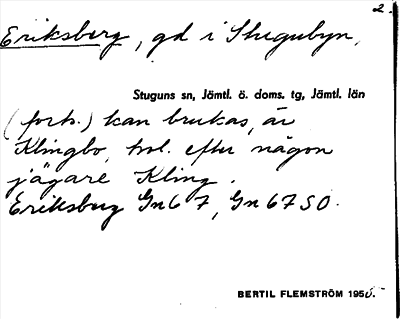 2.
Eriksberg, gd i Stugubyn,
Stuguns sn, Jämtl. ö. doms. tg, Jämtl. län
(forts.) kan brukas, är
Klingbo, trol. efter någon
jägare Kling.
Eriksberg Gn 67, Gn 67 SO.
BERTIL FLEMSTRÖM 1955.